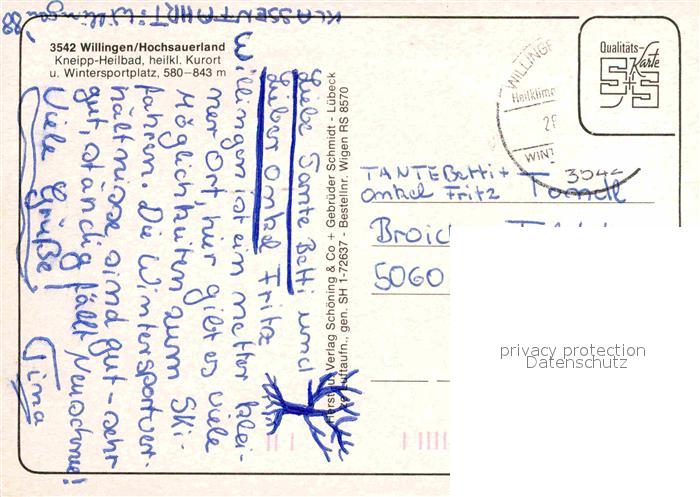 KLASSENFAHRT: Willingen '88
3542 Willingen/Hochsauerland
Kneipp-Heilbad, heilkl. Kurort
u. Wintersportplatz, 580–843 m
Liebe Tante Betti und
lieber Onkel Fritz
Willingen ist ein netter klei-
ner Ort, hier gibt es viele
Möglichkeiten zum Ski-
fahren. Die Wintersportver-
hältnisse sind gut - sehr
gut, ständig fällt Neuschnee!
Viele Grüße!
Tina
Verlag Schöning & Co + Gebrüder Schmidt - Lübeck
Luftaufn., gen. SH 1-72637 - Bestellnr. Wigen RS 8570
Qualitäts-
Karte
S+S
WILLING
Heilklim
WINT
TANTE Betti +
Onkel Fritz
Broic
5060
privacy protection
Datenschutz